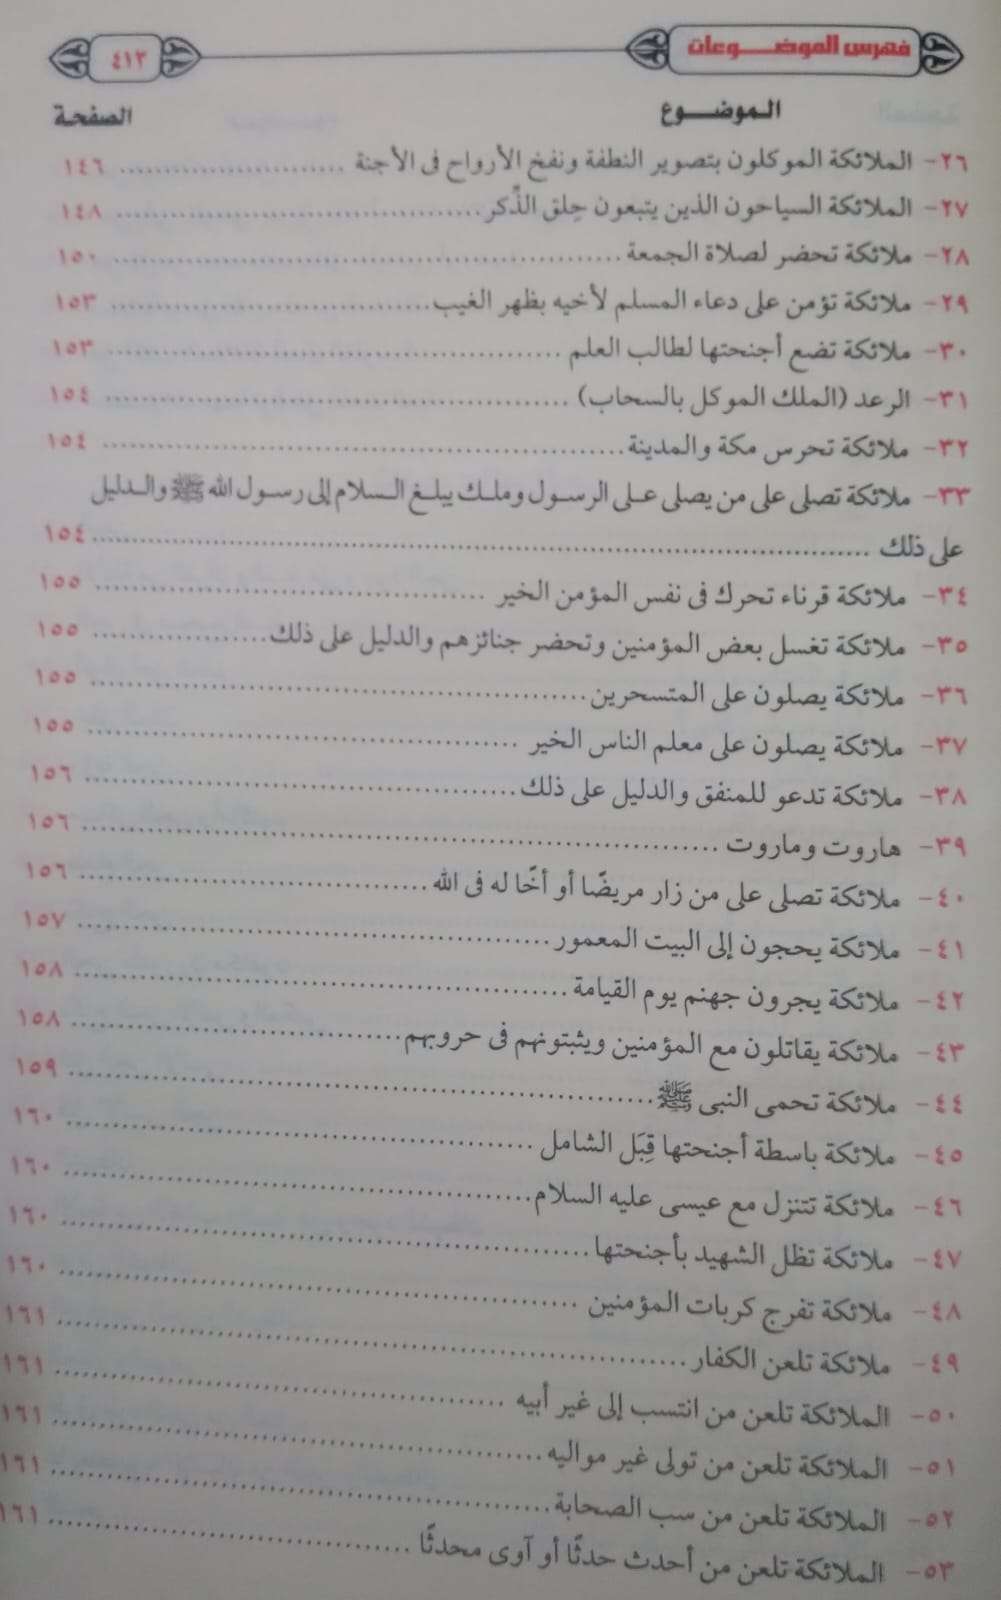 فهرس الموضـــوعات
٤١٣
الموضـــوع الصفحة
٢٦- الملائكة الموكلون بتصوير النطفة ونفخ الأرواح فى الأجنة ........................ ١٤٦
٢٧- الملائكة السياحون الذين يتبعون حِلق الذِّكر ........................................ ١٤٨
٢٨- ملائكة تحضر لصلاة الجمعة ........................................................ ١٥٠
٢٩- ملائكة تؤمن على دعاء المسلم لأخيه بظهر الغيب .................................. ١٥٣
٣٠- ملائكة تضع أجنحتها لطالب العلم ................................................ ١٥٣
٣١- الرعد (الملك الموكل بالسحاب) .................................................. ١٥٤
٣٢- ملائكة تحرس مكة والمدينة ........................................................ ١٥٤
٣٣- ملائكة تصلى على من يصلى على الرسول وملك يبلغ السلام إلى رسول الله ﷺ والدليل
على ذلك .................................................................................. ١٥٤
٣٤- ملائكة قرناء تحرك فى نفس المؤمن الخير .......................................... ١٥٥
٣٥- ملائكة تغسل بعض المؤمنين وتحضر جنائزهم والدليل على ذلك .................. ١٥٥
٣٦- ملائكة يصلون على المتسحرين .................................................... ١٥٥
٣٧- ملائكة يصلون على معلم الناس الخير .............................................. ١٥٥
٣٨- ملائكة تدعو للمنفق والدليل على ذلك ............................................ ١٥٦
٣٩- هاروت وماروت .................................................................... ١٥٦
٤٠- ملائكة تصلى على من زار مريضًا أو أخًا له فى الله ................................ ١٥٦
٤١- ملائكة يحجون إلى البيت المعمور .................................................. ١٥٧
٤٢- ملائكة يجرون جهنم يوم القيامة .................................................... ١٥٨
٤٣- ملائكة يقاتلون مع المؤمنين ويثبتونهم فى حروبهم .................................. ١٥٨
٤٤- ملائكة تحمى النبى ﷺ .............................................................. ١٥٩
٤٥- ملائكة باسطة أجنحتها قِبَل الشامل ................................................ ١٦٠
٤٦- ملائكة تتنزل مع عيسى عليه السلام ................................................ ١٦٠
٤٧- ملائكة تظل الشهيد بأجنحتها ...................................................... ١٦٠
٤٨- ملائكة تفرج كربات المؤمنين ...................................................... ١٦٠
٤٩- ملائكة تلعن الكفار ................................................................ ١٦١
٥٠- الملائكة تلعن من انتسب إلى غير أبيه .............................................. ١٦١
٥١- الملائكة تلعن من تولى غير مواليه .................................................. ١٦١
٥٢- الملائكة تلعن من سب الصحابة .................................................... ١٦١
٥٣- الملائكة تلعن من أحدث حدثًا أو آوى محدثًا ...................................... ١٦١